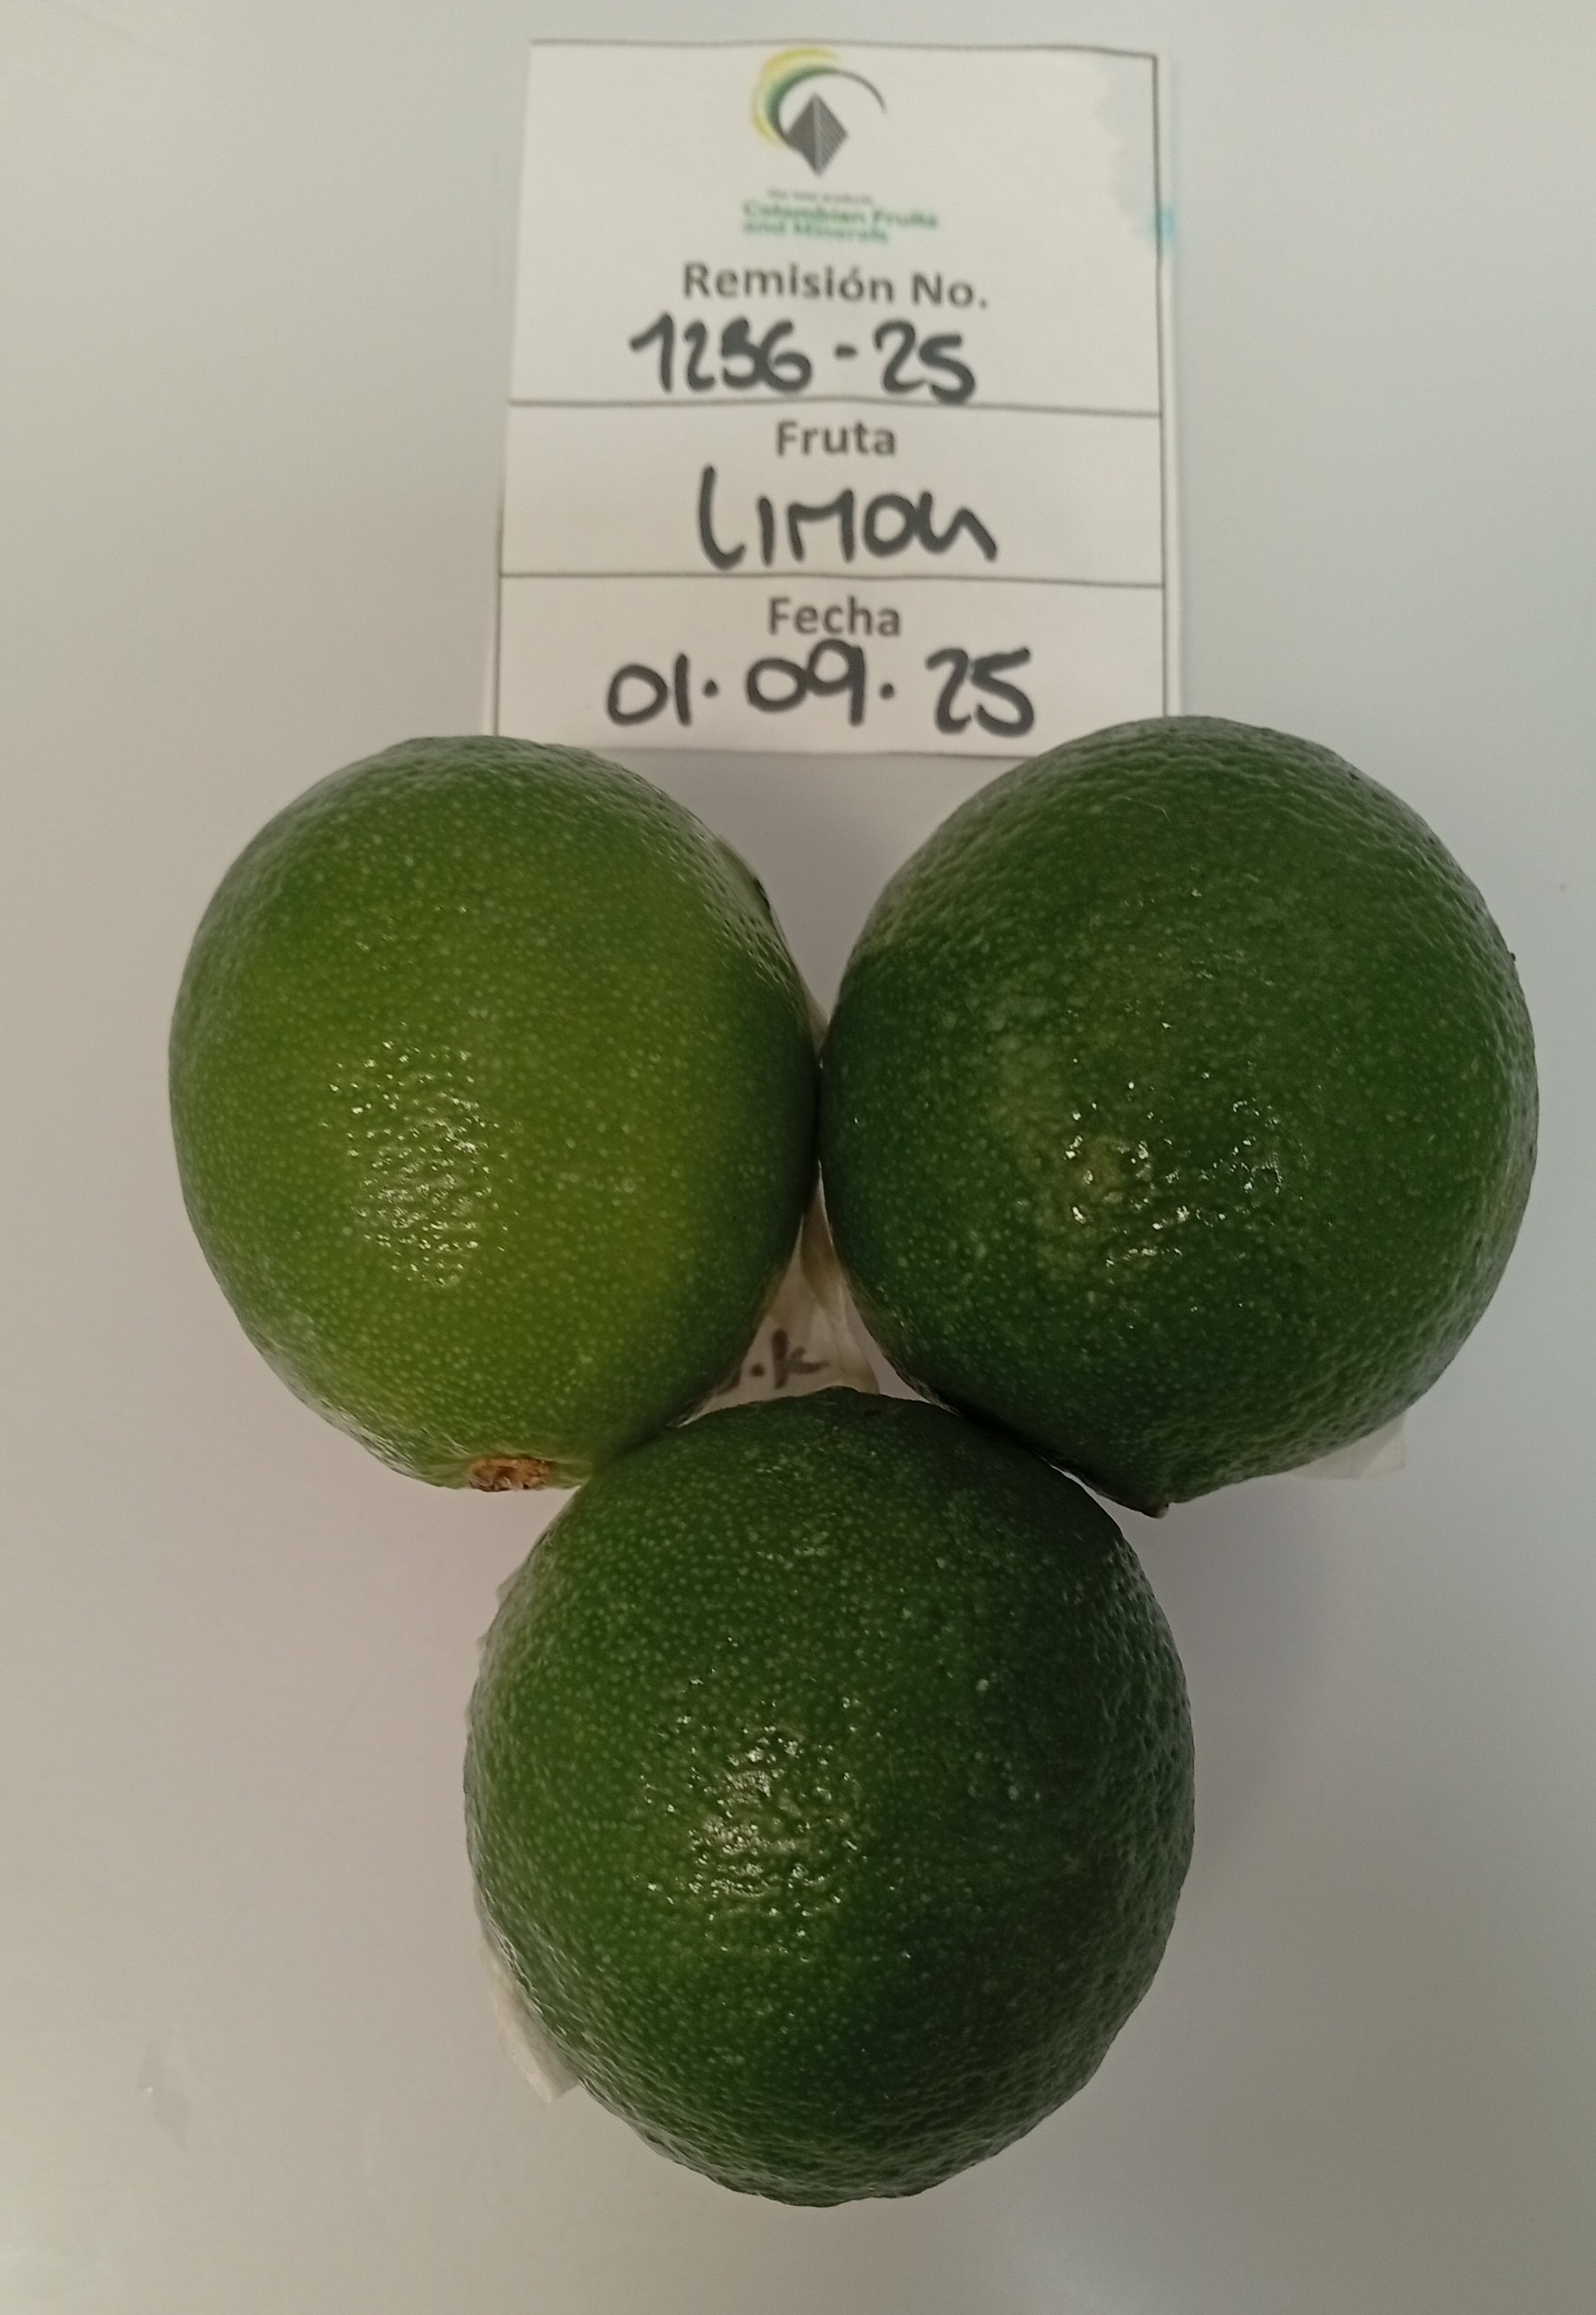 Colombian Fruits
and Minerals
Remisión No.
1236-25
Fruta
LIMON
Fecha
01.09.25